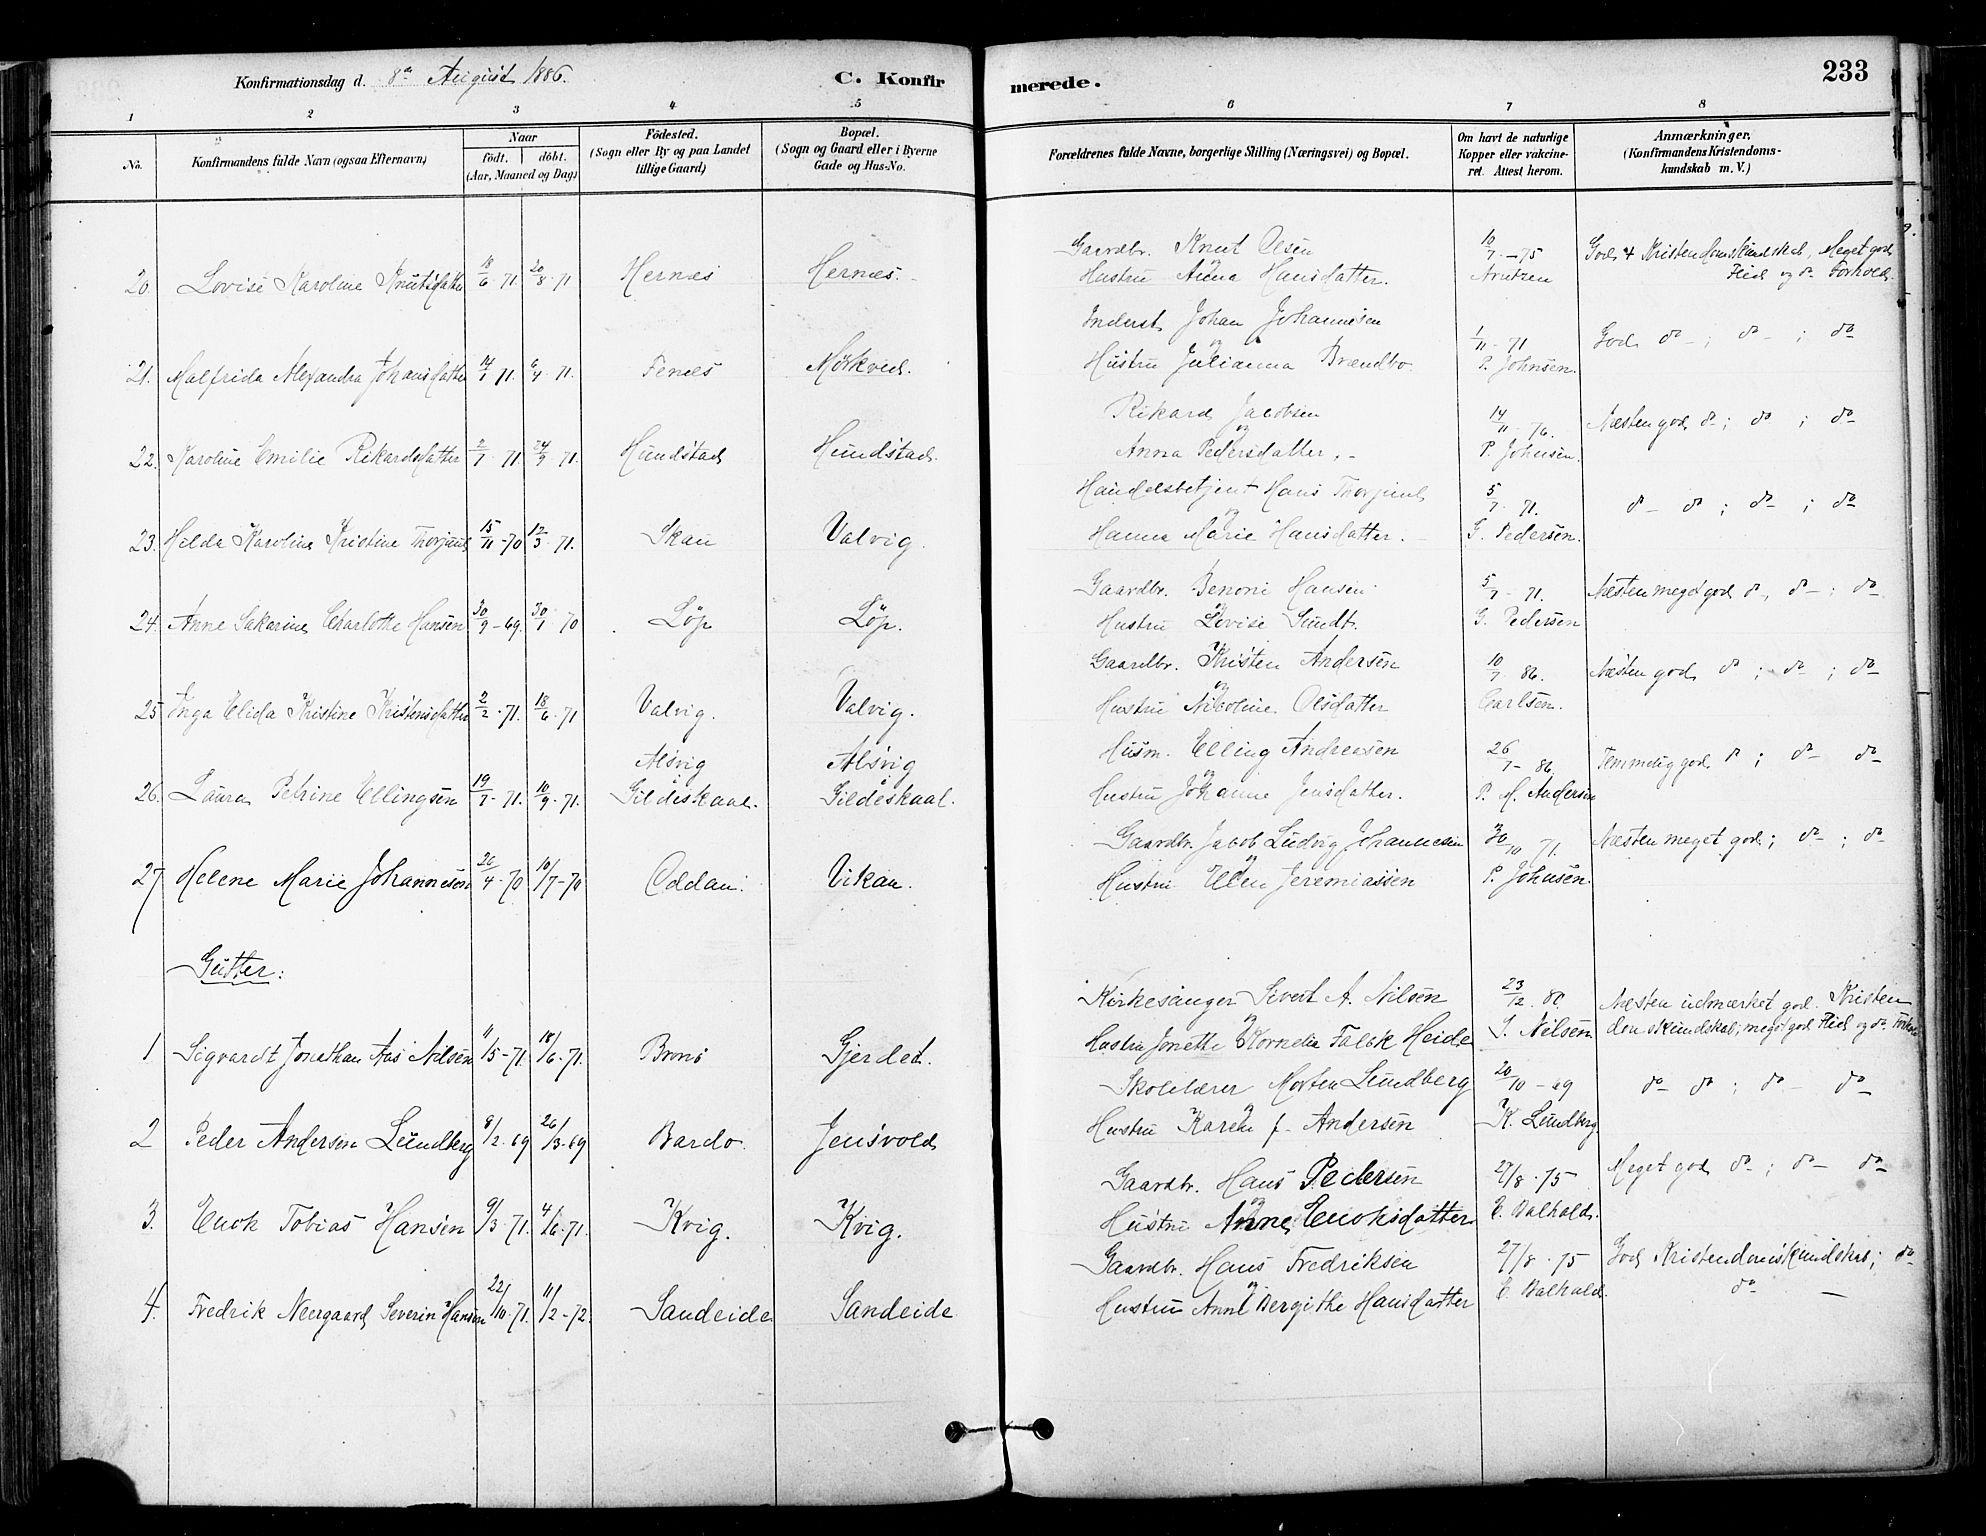 Konfirmationsdag d. 8de August 1886. C. Konfirmerede. 233
1 2 3 4 5 6 7 8
No. Konfirmandens fulde Navn (ogsaa Efternavn) Naar födt. döbt. (Aar, Maaned og Dag) Födested. (Sogn eller By og paa Landet tillige Gaard) Bopæl. (Sogn og Gaard eller i Byerne Gade og Hus-No. Forældrenes fulde Navne, borgerlige Stilling (Næringsvei) og Bopæl. Om havt de naturlige Kopper eller vakcineret. Attest herom. Anmærkninger. (Konfirmandens Kristendomskundskab m. V.)
Gaardbr. Knut Olsen 10/7 - 75 God Kristendomskundskab, Meget god
20. Lovise Karoline Knutsdatter /6 71. 20/8 71 Hernæs Hernæs. og Hustru Anna Hansdatter. Arntzen Flid og do Forhold.
Inderst Johan Johannesen 1/11 - 71 God do - ; do - ; do
21. Malfrida Alexandra Johansdatter 14/1 71. 6/4 71. Fenæs Mørkved. og Hustru Julianna Brændbo P. Johnsen.
Rikard Jacobsen 14/11 76. Næsten god do ; do ; do
22. Karoline Emilie Rikardsdatter 2/7 71. 24/9 71. Hundstad Hundstad. og Anna Pedersdatter. P. Johnsen.
Handelsbetjent Hans Thorjuul 5/7 71. do do ; do ; do
23. Hilda Karoline Kristine Thorjuul 15/11 - 70 12/3 71. Skau Valvig. og Hanna Marie Hansdatter. G. Pedersen.
Gaardbr. Benoni Hansen 5/7 - 71. Næsten meget god do, do - ; do
24. Anne Sakarine Charlotte Hansen 30/9 - 69. 30/1 70 Løp Løp. og Hustru Lovise Sundt. G. Pedersen
Gaardbr. Kristen Andersen 10/7 86. Næsten god do ; do ; do
25 Inga Elida Kristine Kristensdatter 2/2 71. 18/6 71 Valvig. Valvig. og Hustru Nikoline Olsdatter Carlsen.
Alsvig Alsvig Husm. Elling Andreasen 26/7 - 86. Temmelig god do ; do do
26. Laura Petrine Ellingsen 19/7 71. 10/9 71. Gildeskaal. Gildeskaal. og Hustru Johanne Jensdatter. P. M. Andersen
Gaardbr. Jacob Ludvig Johannesen 30/10 71. Næsten meget god ; do ; do
27 Helene Marie Johannesen 26/4 - 70 10/7 - 70 Oddan. Vikan. og Hustru Elen Jeremiassen P. Johnsen.
Gutter:
Kirkesanger Sivert A. Nilsen 23/12. 80 Næsten udmærket god Kristen
1 Sigvardt Jonathan Aas Nilsen 11/5 - 71. 18/6 - 71. Brønø Gjerdet. og Hustru Jonette Kornelia Falck Heide S. Nilsen domskundskab; meget god Flid og do Forhold
Skolelærer Morten Lundberg 20/10 - 69 do do ; do do
2 Peder Andersen Lundberg 8/2 - 69 26/3 - 69 Bardo Jensvold og Hustru Karen f. Andersen K. Lundberg
Gaardbr. Hans Pedersen 27/8 - 75 Meget god do ; do do
3. Enok Tobias Hansen 9/3 - 71. 4/6 - 71. Kvig. Kvig. og Hustru Anne Enoksdatter E. Balhald.
Gaardbr. Hans Fredriksen 27/8 - 75 God Kristendomskundskab; do
4. Fredrik Neergaard Severin Hansen 22/10 - 71. 11/2 - 72. Sandeide Sandeide og Hustru Anne Bergithe Hansdatter E. Balhald. do